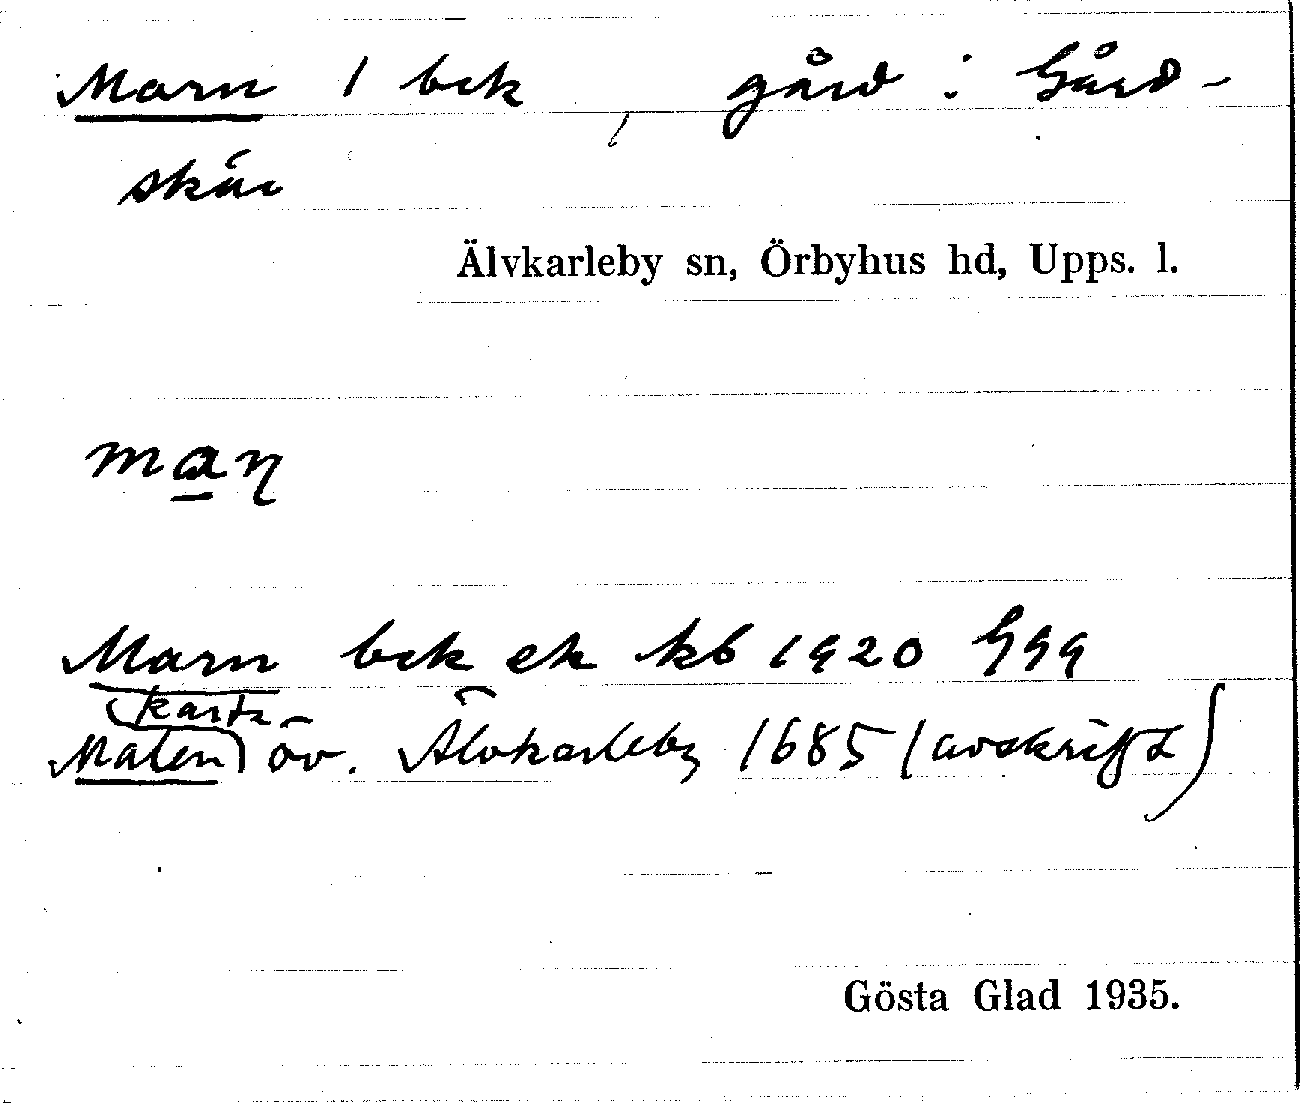 Marn 1 bek, gård i Gård-
skär
Älvkarleby sn, Örbyhus hd, Upps. l.
man
Marn bek ek kb 1920 Ggg
(karta
Maten) öv. Älvkarleby 1685 (avskrift)
Gösta Glad 1935.